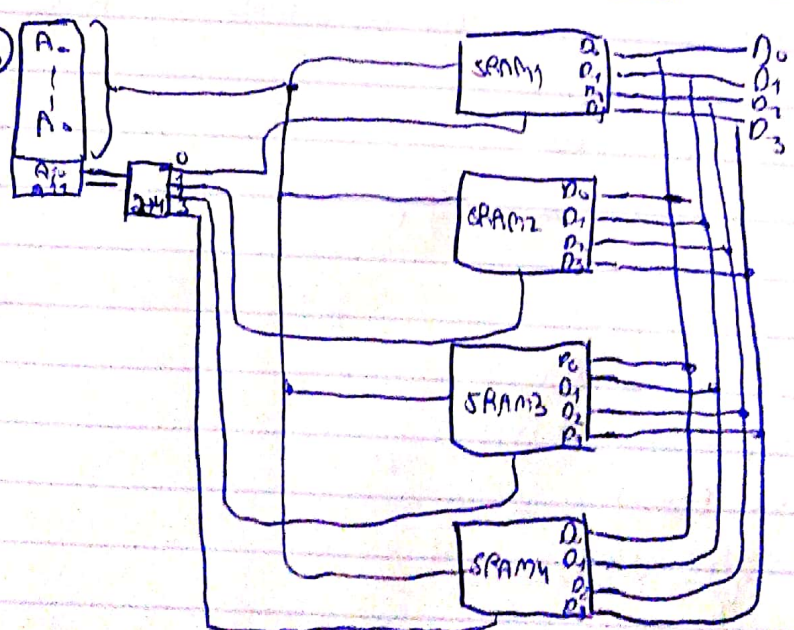 A₀
A₉
A₁₀
A₁₁
2→4
0
1
2
3
SRAM1
D₀
D₁
D₂
D₃
D₀
D₁
D₂
D₃
SRAM2
D₀
D₁
D₂
D₃
SRAM3
D₀
D₁
D₂
D₃
SRAM4
D₀
D₁
D₂
D₃